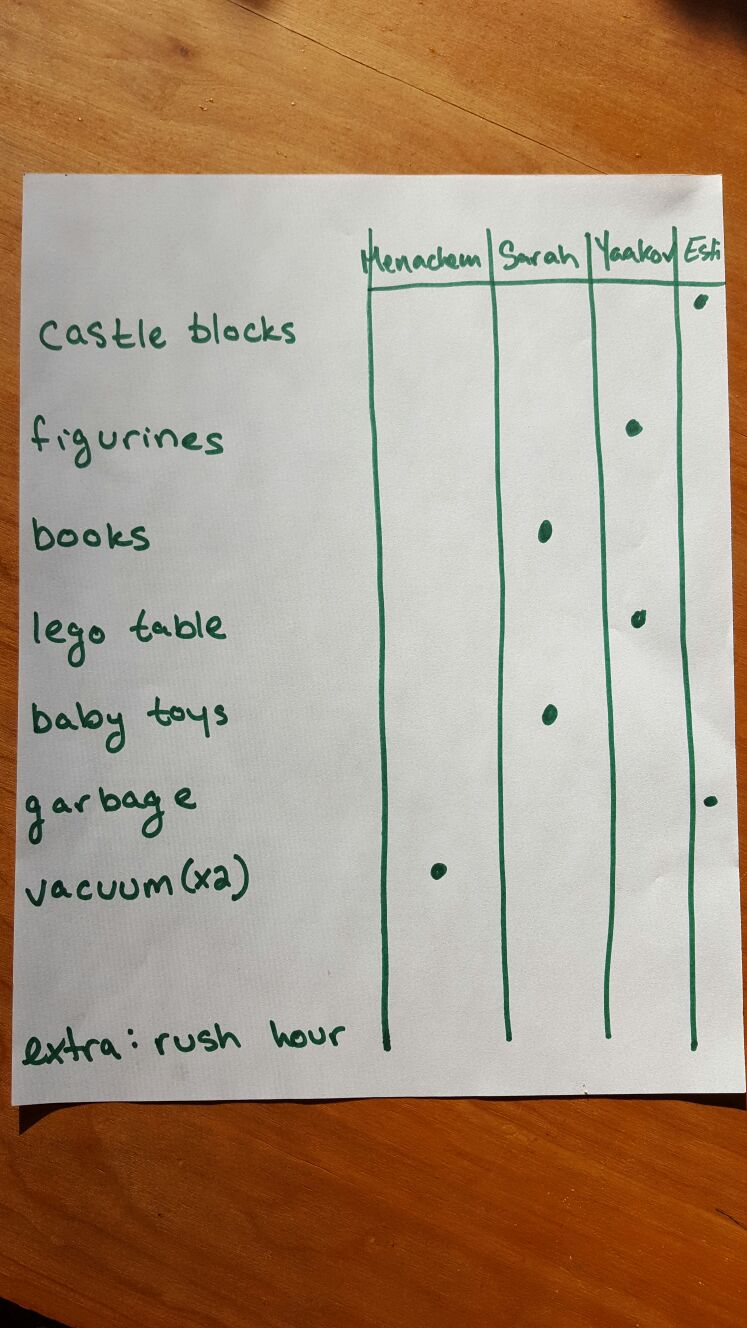 Menachem Sarah Yaakov Esti
castle blocks
figurines
books
lego table
baby toys
garbage
vacuum (x2)
extra: rush hour